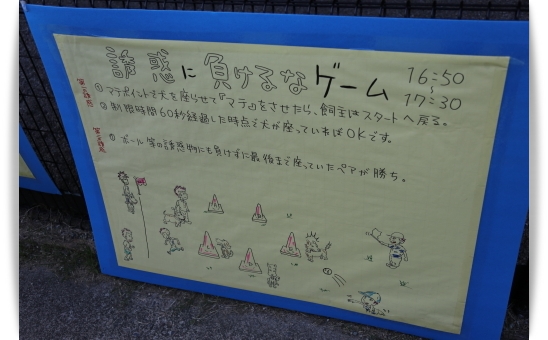 誘惑に負けるなゲーム
16:50
~
17:30
① マテポイントで犬を座らせて『マテ』をさせたら、飼主はスタートへ戻る。
② 制限時間60秒経過した時点で犬が座っていればOKです。
③ ボール等の誘惑物にも負けずに最後まで座っていたペアが勝ち。